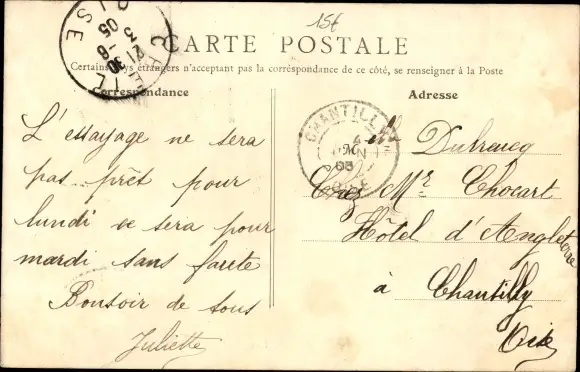 15f
CARTE POSTALE
Certains pays étrangers n'acceptant pas la correspondance de ce côté, se renseigner à la Poste
Correspondance
Adresse
L'essayage ne sera
pas prêt pour
lundi ce sera pour
mardi sans faute
Bonsoir de tous
Juliette
CHANTILLY
OISE
Dubrucq
Chez Mr Chocart
Hôtel d'Angleterre
à Chantilly
Oise